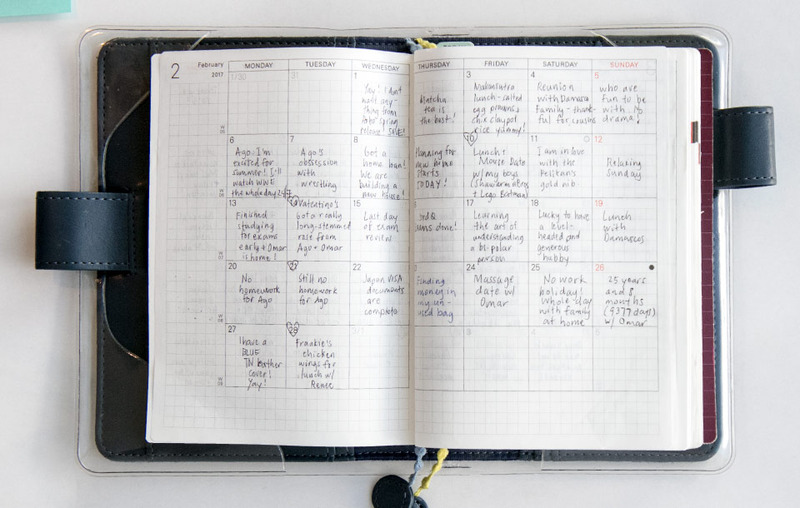 2 February
2017
MONDAY TUESDAY WEDNESDAY THURSDAY FRIDAY SATURDAY SUNDAY
1/30
31
1
Yay! I don't
want any-
thing from
Jobo' spring
release! SAVE!
Matcha
tea is
the best!
3
Nakanatra
lunch - salted
egg prawns,
chix claypot
rice yummy!
4
Reunion
with Damara
Family - thank-
ful for cousins
5
who are
fun to be
with. No
drama!
6
Ago: I'm
excited for
summer! I'll
watch WWE
the whole day 24/7
7
Ago's
obsession
with
wrestling
8
Got a
home loan!
We are
building a
new house!
Planning for
new home
starts
TODAY!
10
Lunch +
Movie Date
w/ my boys
(Shawarma Bros
+ Lego Batman)
11
I am in love
with the
Pelikan's
gold nib.
12
Relaxing
Sunday
13
Finished
studying
for exams
early + Omar
is home!
14
Valentine's
Got a really
long-stemmed
rose from
Ago + Omar
15
Last day
of exam
review
3rd Q
exams done!
17
Learning
the art of
understanding
a bi-polar
person
18
Lucky to have
a level-
headed and
generous
hubby
19
Lunch
with
Damascos
20
No
homework
for Ago
21
Still no
homework
for Ago
22
Japan VISA
documents
are
complete
Finding
money in
my un-
used bag
24
Massage
date w/
Omar
25
No work
holiday!
Whole day
with family
at home
26
25 years
and 8
months
(9377 days)
w/ Omar
27
I have a
BLUE
TN leather
cover!
Yay!
28
Frankie's
chicken
wings for
lunch w/
Renee